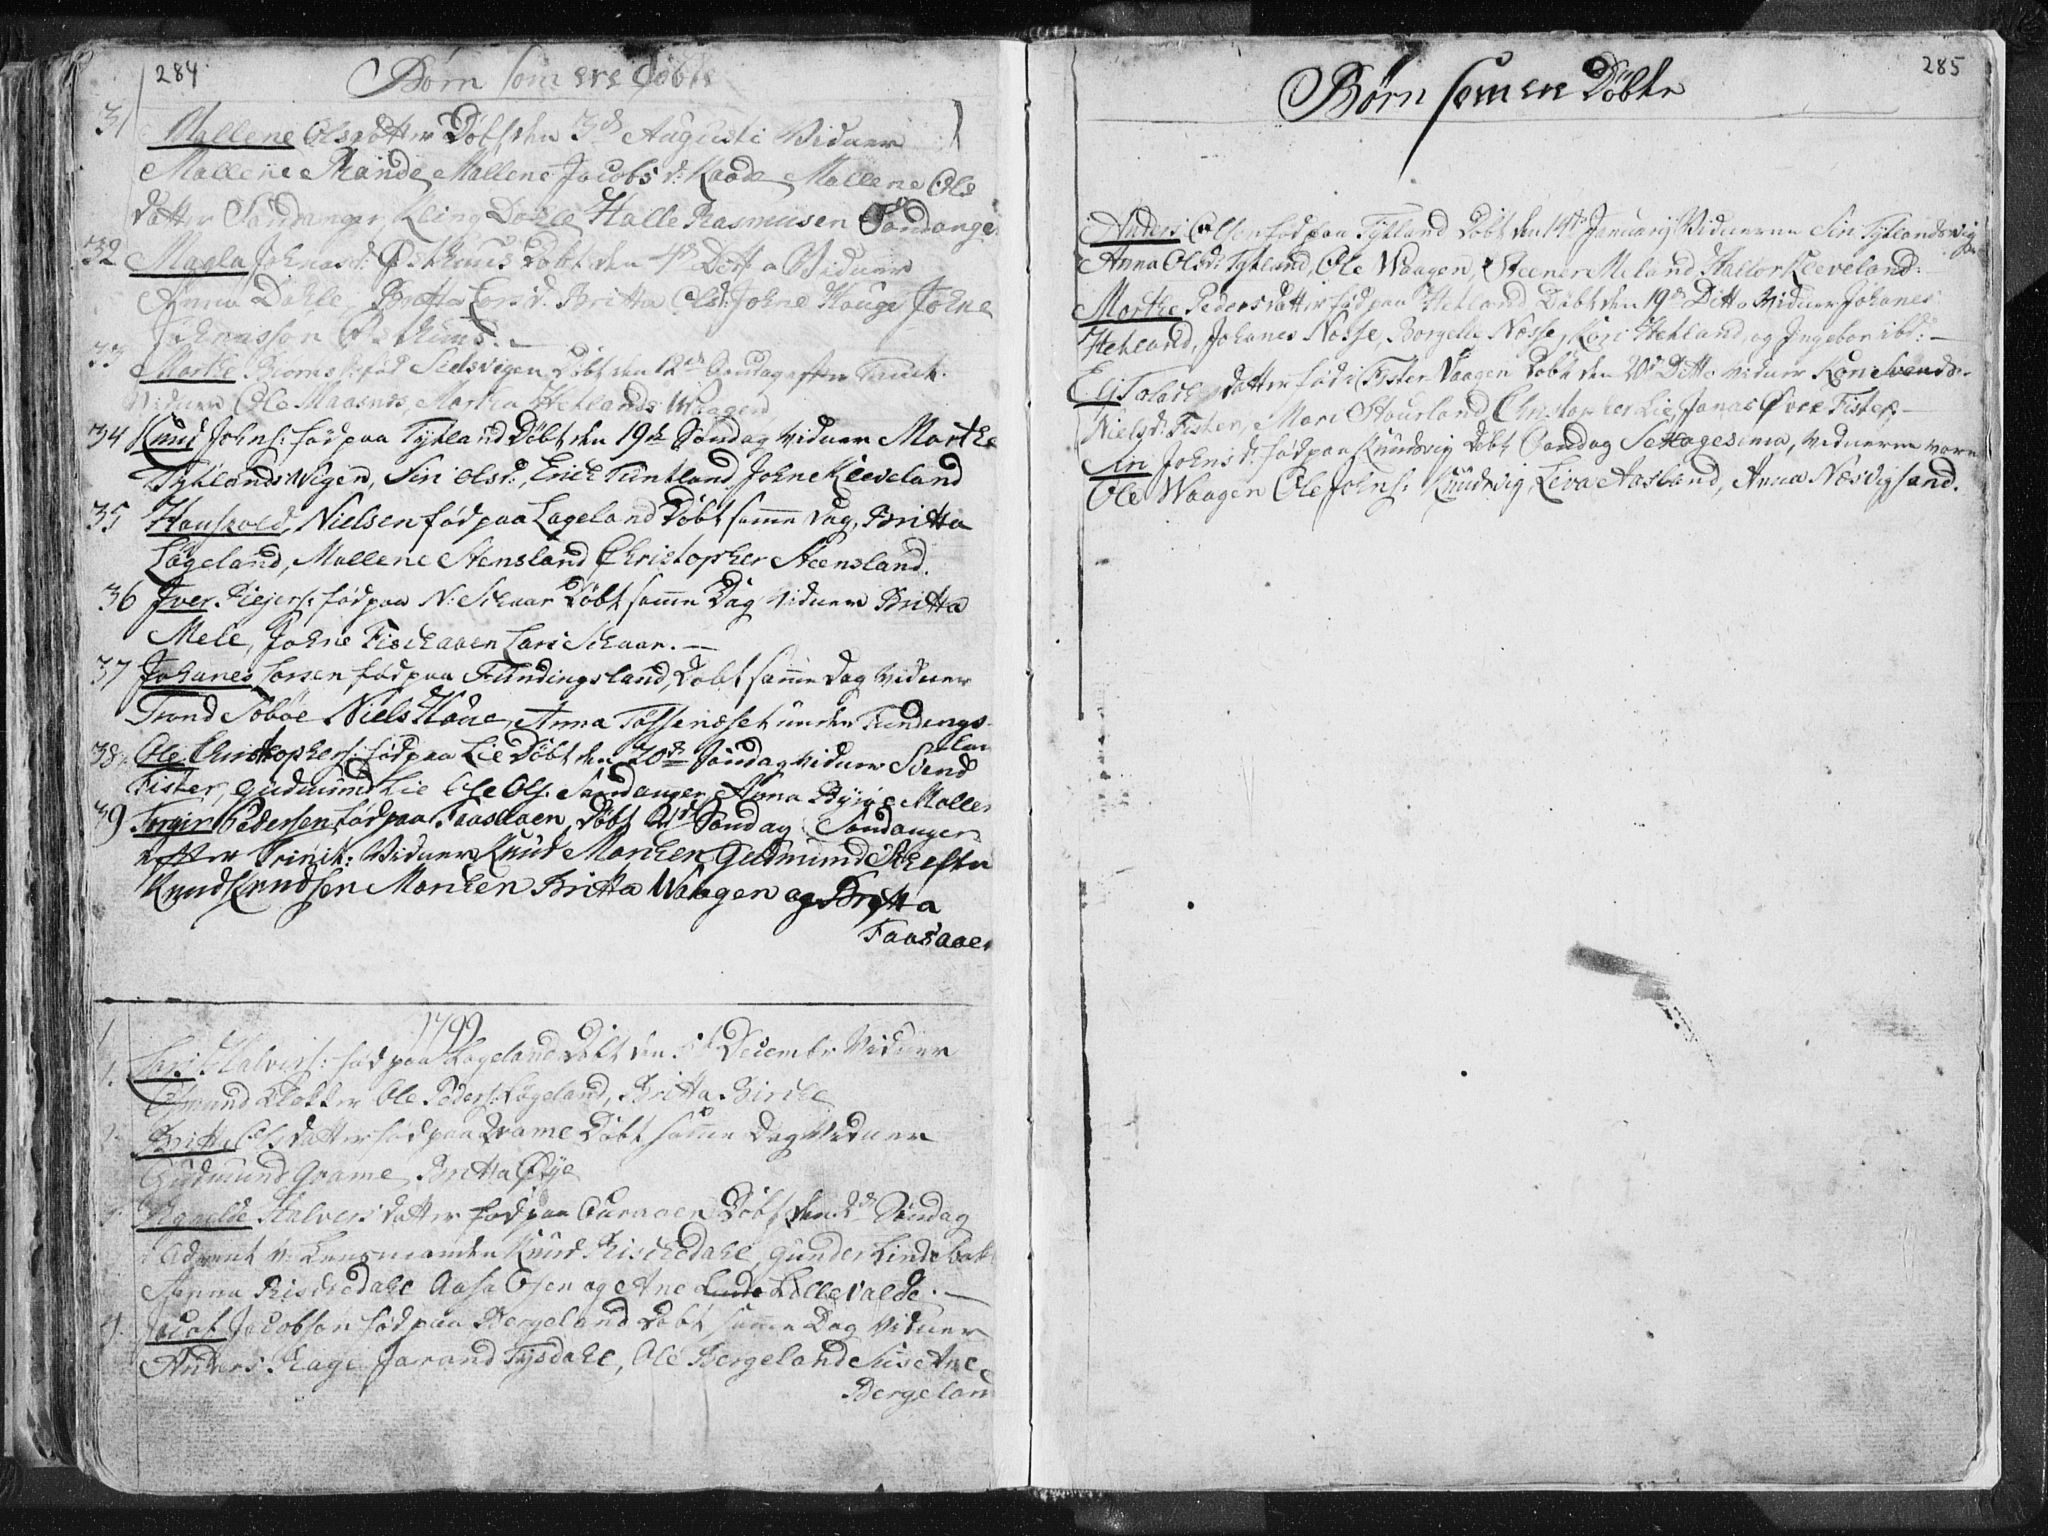 284
Børn som ere Døbte
31 Mallene Olsdotter Døbt den 3de Augusti Vidner
Mallene Rande, Mallene Jacobs d: Kaada Mallene Ols
datter Sandanger, Dahle Halle Rasmusen Sandange
32 Magla Johnas d: Østhuus Døbt den 4de Ditto Vidner
Anna Dahle, Britta Lars d: Britta Olsd: Johne Houge Johne
Johnasson Østhuus. —
33 Marthe fød Døbt den 12te Søndag efter Trinit:
Vidner Ole Maasnes, Martha Hetlands Waagen
34 Knud Johns: fød paa Tytland Døbt den 19de Søndag vidner Marthe
Tytlands Wigen, Siri Olsd:, Erich Tuntland Johne Kleveland
35 Nielsen fød paa Lageland Døbt samme Dag, Britta
Lageland, Mallene Stensland Christopher Steensland.
36 Iver Reiers: fød paa N: Schaar Døbt samme Dag vidner Britta
Mele, Johne Fischaaen Lars Schaar. —
37 Johanes Larsen fød paa Fundingsland, Døbt samme Dag vidner
Trond Søbøe Niels Houe, Anna Tossenæset Fundings
lan
38 Ole Christophers: fød paa Lie Døbt den 20de Søndag vidner Svend
Fister, Gudmund Lie Ole Ols: Sandanger Anna Byrge Malle
39 Pedersen fød paa Faasaaen, Døbt 21de Søndag Sandanger
efter Trinit: Vidner Knud Marchen Gudmund Schefte
Knud Knudsen Marchen Britta Waagen og Britta
Faasaae
1799
1. Lars Halvers: fød paa Lageland Døbt den 1st December Vidner
Osmund Klokker Ole Peders: Lageland, Britta Birche
2. Britta Ols datter fød paa Qvame Døbt samme Dag Vidner
Gudmund Qvame, Britta Øye
3. Halvers datter fød paa Døbt den 2d Søndag
i Advent v: Lensmanden Knud Rischedahl, Gunder Lindebak
Anna Rischedahl Aasa Osen og Ane Lille Valde. —
4. Jacob Jacobson fød paa Bergeland Døbt samme Dag Vidner
Anders Hage Jarand Tysdahl, Ole Bergeland Ane
Bergelan
285
Børn som ere Døbte
Anders fød paa Tytland Døbt den 14de Januarij Vidnerne Siri Tytlandsvig
Anna Olsd: Tytland, Ole Waagen, Steener Meland Halvor Kleveland.
Marthe Pedersdatter fød paa Hetland Døbt den 19de Ditto Vidner Johanes
Hetland, Johanes Nosse, Borgelle Næsse, Kari Hetland, og Ingebor ibd: —
Eli datter fød i Fister Vaagen Døbt den 20d Ditto vidner Kari Svends.
Niels d: Fister, Mari Stourland, Christopher Lie, Jonas Øvre Fister —
Siri Johns d: fød paa Knudsvig Døbt Søndag Septagesima, vidnerne vare
Ole Waagen Ole Johns: Knudsvig, Liva Aasland, Anna Næsvigsand.